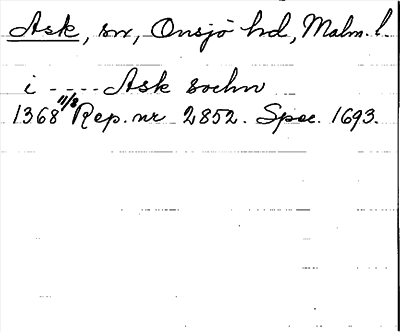 Ask, sn, Onsjö hd, Malm. l.
i ---- Ask sochn
1368 11/8 Rep. nr 2852. Spec. 1693.